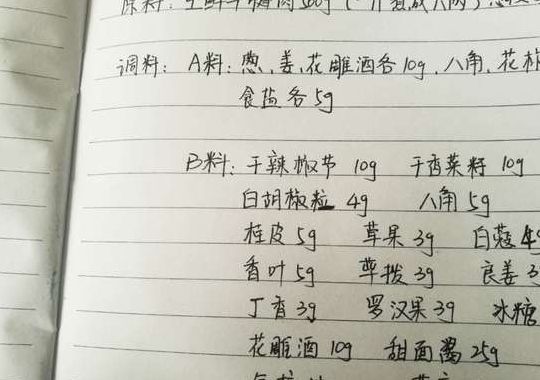 原料：生鲜牛腩肉
调料：A料：葱、姜、花雕酒各10g、八角、花椒
食盐各5g
B料：干辣椒节 10g 干香菜籽 10g
白胡椒粒 4g 八角5g
桂皮5g 草果3g 白蔻4g
香叶5g 荜拨3g 良姜3
丁香3g 罗汉果3g 冰糖
花雕酒10g 甜面酱25g